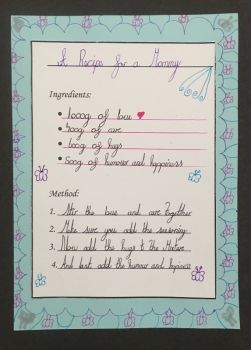 A Recipe for a Mommy
Ingredients:
• 1000g of love
• 700g of care
• 600g of hugs
• 500g of humour and happiness
Method:
1. Stir the love and care together
2. Make sure you add the seasoning
3. Now add the hugs to the mixture
4. And last add the humour and hapiness